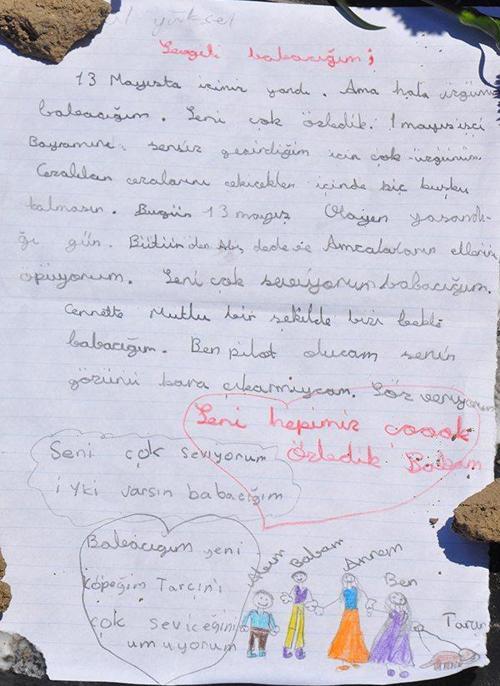 yüksel
Sevgili babacığım;
13 Mayısta içimiz yandı. Ama hala üzgünüm
babacığım. Seni çok özledik. 1 mayıs işçi
Bayramını sensiz geçirdiğim için çok üzgünüm.
cezalarını çekicekler içinde hiç kuşku
kalmasın. Bugün 13 mayıs Olayın yaşandı-
ğı gün. Bütün dede ve Amcaların ellerinden
öpüyorum. Seni çok seviyorum babacığım.
Cennette Mutlu bir şekilde bizi bekle
babacığım. Ben pilot olucam senin
gözünü kara çıkarmıycam. Söz veriyorum
Seni hepimiz çoook
özledik Babam
Seni çok seviyorum
iyki varsın babacığım
Babacığım yeni
köpeğim Tarcin'i
çok seviceğini
umuyorum
Babam
Annem
Ben
Tarcın